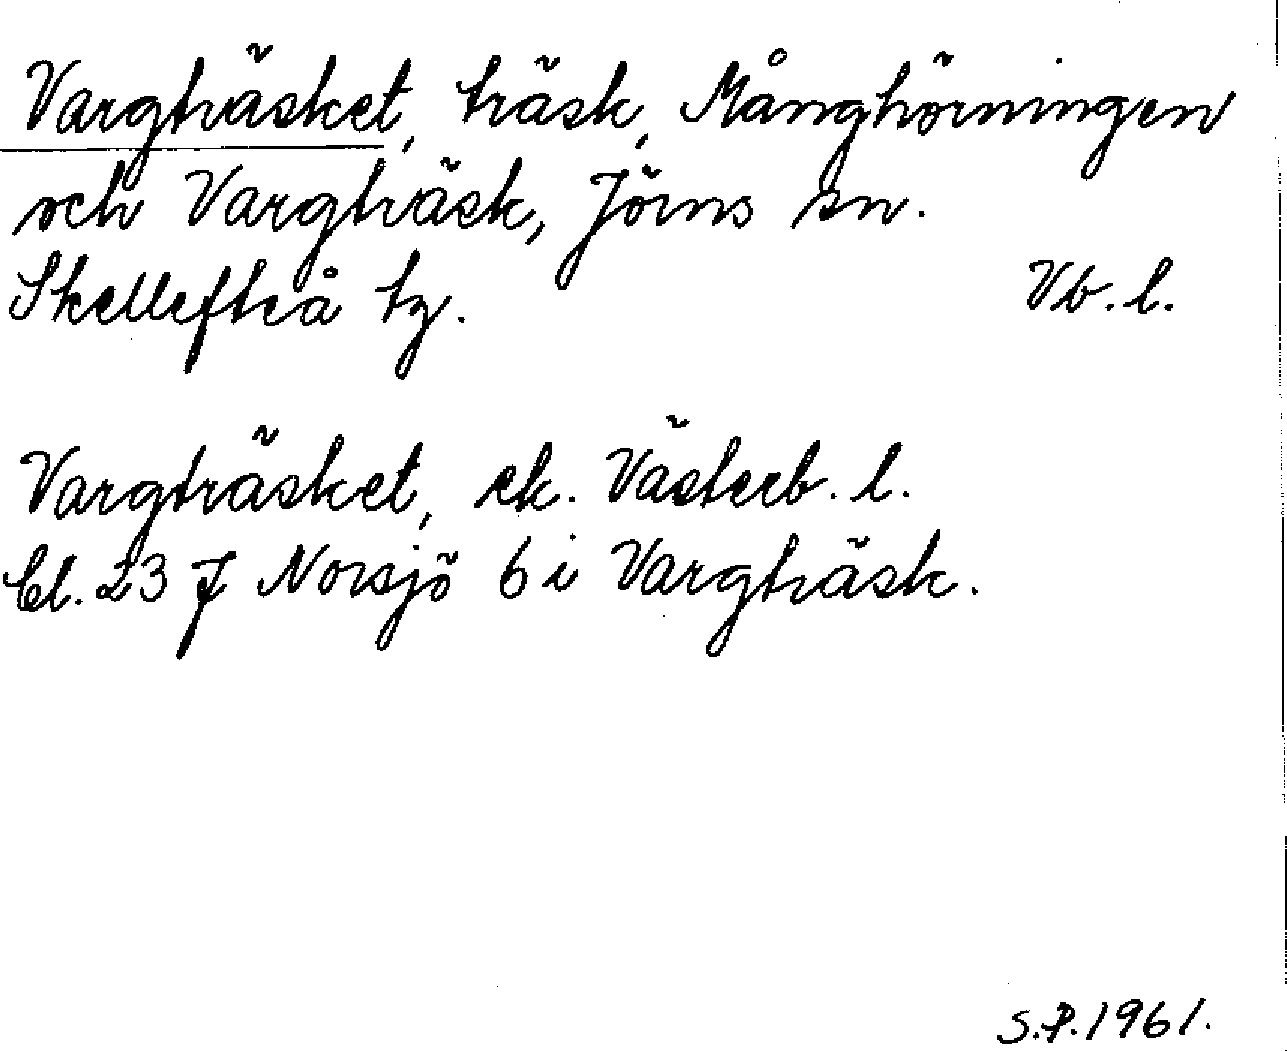 Vargträsket, träsk, Månghörningen
och Vargträsk, Jörns sn.
Skellefteå tg. Vb. l.
Vargträsket, ek. Västerb. l.
bl. 23 J Norsjö 6 i Vargträsk.
S.P. 1961.